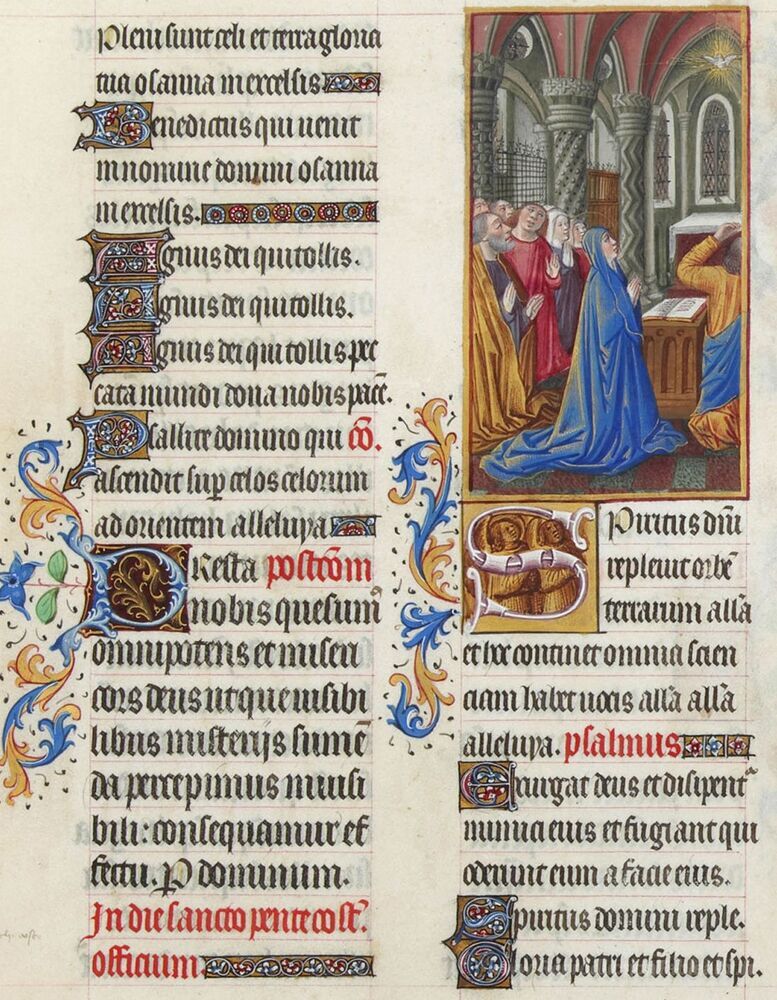 Pleni sunt celi et terra gloria
tua osanna in excelsis
Benedictus qui venit
in nomine domini osanna
in excelsis.
Agnus dei qui tollis.
Agnus dei qui tollis.
Agnus dei qui tollis pec
cata mundi dona nobis pacē.
Psallite domino qui cō.
ascendit sup celos celorum
ad orientem alleluya
Presta postcōm
nobis quesumꝰ
omnipotens et miseri
cors deus ut que visibi
libus misterijs sumē
da percepimus invisi
bili: consequamur ef
fectu. P dominum.
In die sancto pentecost.
officium
Spiritus dn̄i
replevit orbē
terrarum all̄a
et hoc continet omnia scien
ciam habet vocis all̄a all̄a
alleluya. psalmus
Exurgat deus et disipent᷑
inimici eius et fugiant qui
oderunt eum a facie eius.
Spiritus domini reple.
Gloria patri et filio et spi.